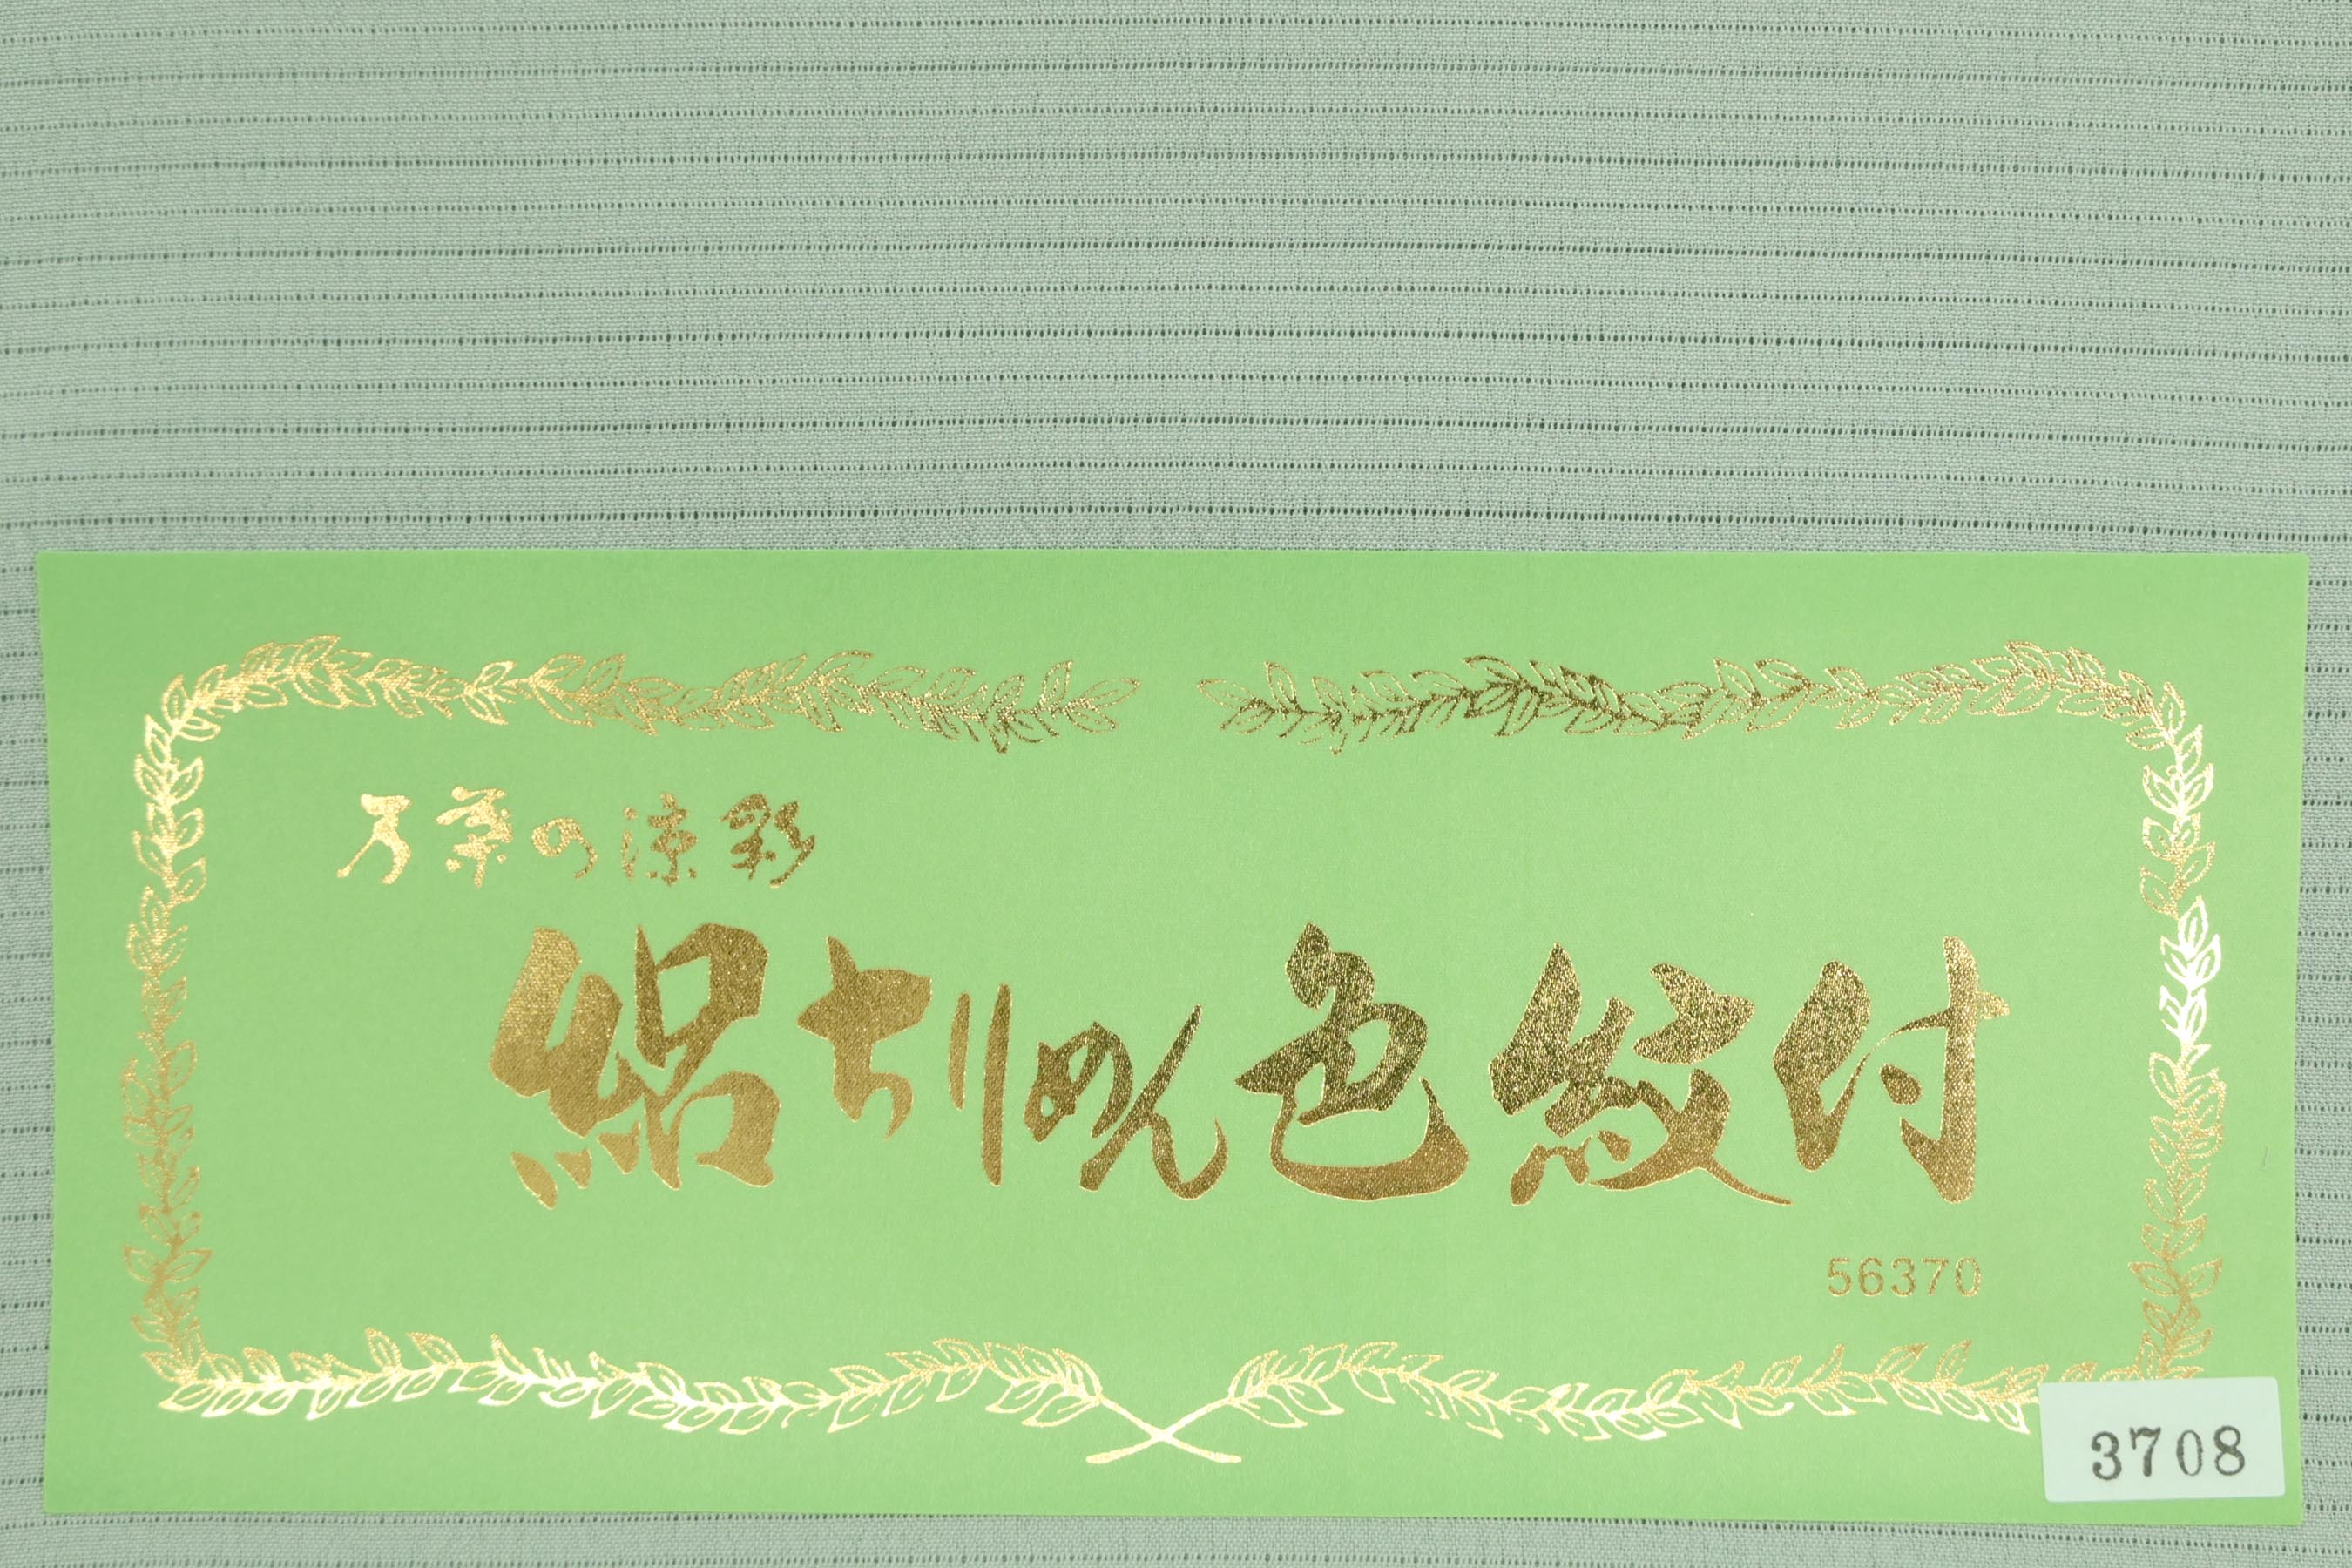 万葉の涼彩
絽ちりめん色紋付
56370
3708